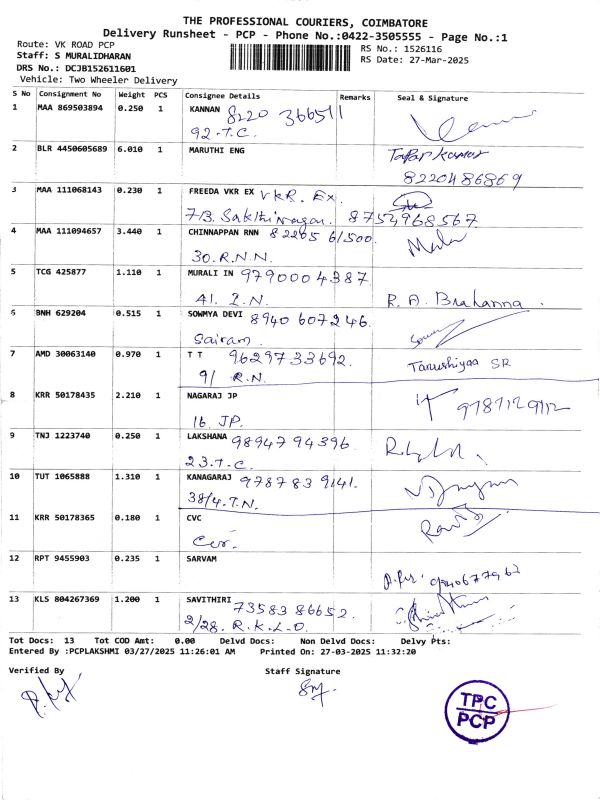 THE PROFESSIONAL COURIERS, COIMBATORE
Delivery Runsheet - PCP - Phone No.:0422-3505555 - Page No.:1
Route: VK ROAD PCP
Staff: S MURALIDHARAN
DRS No.: DCJB152611601
Vehicle: Two Wheeler Delivery
RS No.: 1526116
RS Date: 27-Mar-2025
S No Consignment No Weight PCS Consignee Details Remarks Seal & Signature
1 MAA 869503894 0.250 1 KANNAN 8220 366511
92-T.C.
2 BLR 4450605689 6.010 1 MARUTHI ENG
8220486869
3 MAA 111068143 0.230 1 FREEDA VKR EX VKR. Ex.
7/3. Sakthi Nagar. 8754968567
4 MAA 111094657 3.440 1 CHINNAPPAN RNN 82205 61500.
30. R.N.N.
5 TCG 425877 1.110 1 MURALI IN 979000 4387
41. I.N. R. A. Brahanna.
6 BNH 629204 0.515 1 SOWMYA DEVI 8940 607246.
Sairam.
7 AMD 30063140 0.970 1 T T 9629733692.
9/ R.N. Tarushiyaa SR
8 KRR 50178435 2.210 1 NAGARAJ JP
16. JP. 9787129112
9 TNJ 1223740 0.250 1 LAKSHANA 98947 94396
23.T.C.
10 TUT 1065888 1.310 1 KANAGARAJ 978783 9141.
38/4.T.N.
11 KRR 50178365 0.180 1 CVC
12 RPT 9455903 0.235 1 SARVAM
13 KLS 804267369 1.200 1 SAVITHIRI 73583 86652.
2/28. R.K.L.O.
Tot Docs: 13 Tot COD Amt: 0.00 Delvd Docs: Non Delvd Docs: Delvy Pts:
Entered By :PCPLAKSHMI 03/27/2025 11:26:01 AM Printed On: 27-03-2025 11:32:20
Verified By Staff Signature
TPC
PCP